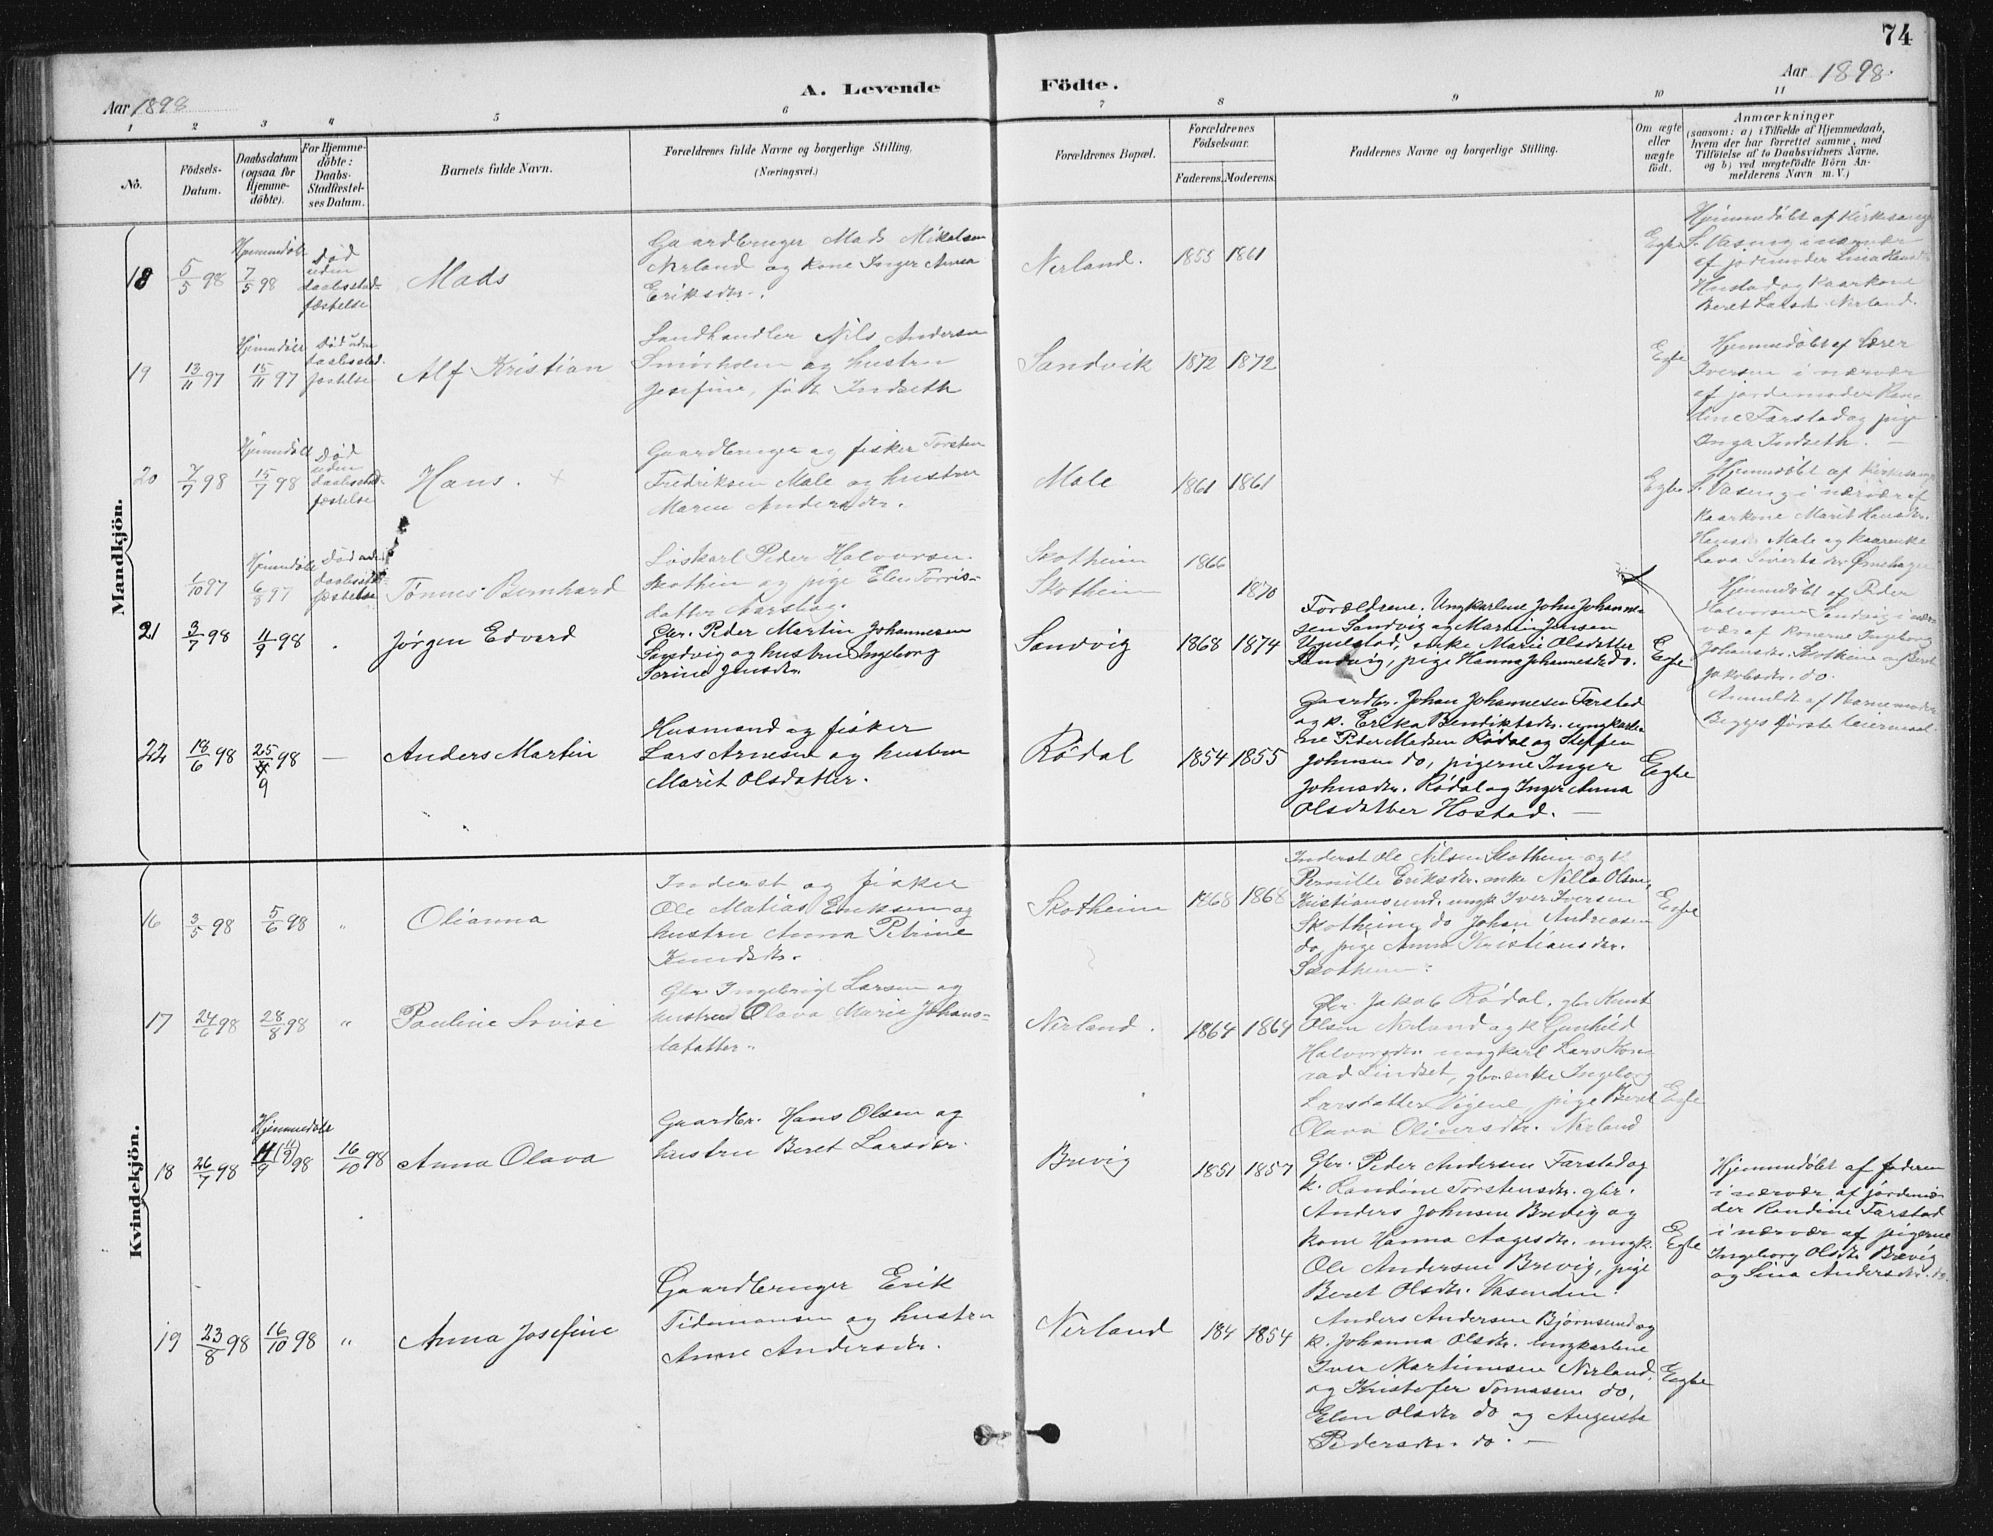 74
Aar 1898
A. Levende Födte.
Aar 1898.
1 2 3 4 5 6 7 8 9 10 11
No.
Födsels-
Datum.
Daabsdatum
(ogsaa for
Hjemme-
döbte).
For Hjemme-
döbte:
Daabs-
Stadfæstel-
ses Datum.
Barnets fulde Navn.
Forældrenes fulde Navne og borgerlige Stilling,
(Næringsvei.)
Forældrenes Bopæl.
Forældrenes
Födselsaar.
Faderens. Moderens.
Faddernes Navne og borgerlige Stilling.
Om ægte
eller
nægte
födt.
Anmærkninger
(saasom: a) i Tilfælde af Hjemmedaab,
hvem der har forrettet samme, med
Tilföielse af to Daabsvidners Navne,
og b) ved uægtefödte Börn An-
melderens Navn m. V.)
Mandkjön.
18
5/5 98
Hjemmedöbt
7/5 98
Død
uden
daabsstad-
fæstelse
Mads
Gaardbruger Mads Mikelsen
Nerland og kone Inger Anna
Eriksdtr.
Nerland.
1855 1861
Egte
Hjemmedöbt af Kirkesanger
S. Vaseng i nærvær
af jordemoder Lina Hansdtr
Hustad og Kaarkone
Beret Larsdtr. Nerland.
19
13/11 97
Hjemmedöbt
15/11 97
Død uden
daabsstad-
fæstelse
Alf Kristian
Landhandler Nils Andersen
Smørholm og hustru
Josefine, født Indseth
Sandvik
1872 1872
Egte
Hjemmedöbt af lærer
Iversen i nærvær
af jordemoder Ran-
dine Farstad og pige
Inga Indseth.
20
7/7 98
Hjemmedöbt
15/7 98
Død
uden
daabsstad-
fæstelse
Hans.
Gaardbruger og fisker Torsten
Fredriksen Male og hustru
Maren Andersdtr.
Male
1861 1861
Egte
Hjemmedöbt af Kirkesanger
S. Vaseng i nærvær af
kaarkone Marit Hansdtr.
Male og kaarenke
Sivertsdtr
1/10 97
Hjemmedöbt
6/8 97
Død uden
daabsstad-
fæstelse
Tønnes Bernhard
Løskarl Peder Halvorsen
Skothein og pige Elen Torris-
datter Farstag.
Skotheim
Skotheim
1866
1870
Hjemmedöbt af Peder
Halvorsen Sandvig i nær-
vær af konerne Ingeborg
Johansdtr. Skotheim og Beret
Jakobsdtr. do.
Anmeldt af Barnemoder
Begges første leiermaal.
21
3/7 98
11/9 98
Jørgen Edvard
Gbr. Peder Martin Johannesen
Sandvig og hustru Ingeborg
Serine Jensdtr.
Sandvig
1868 1874
Forældrene. Ungkarlene John Johanne-
sen Sandvig og Martin Jensen
enke Marie Olsdatter
Sandvig, pige Hanna Johannesdtr do.
Egte
22
18/6 98
25/9 98
Anders Martin
Husmand og fisker
Lars Arnesen og hustru
Marit Olsdatter.
Rødal
1854 1855
Gaardbr. Johan Johannesen Farstad
og k. Erika Bendiktsdtr. ungkarle-
ne Peder Madsen Rødal og Steffen
Johnsen do, pigerne Inger
Johnsdtr. Rødal og Inger Anna
Olsdatter Hostad. —
Egte
Kvindekjön.
16
3/5 98
5/6 98
"
Olianna
Inderst og fisker
Ole Matias Eriksen og
hustru Anna Petrine
Knudsdtr.
Skotheim
1868 1868
Inderst Ole Nilsen Skothein og k.
Pernille Eriksdtr. enke Nilla Olsen,
Kristiansund. ungk Iver Iversen
Skotheim, do Johan Andreasen
do, pige Anna Kristiansdtr.
Skotheim.
Egte
17
24/6 98
28/8 98
"
Pauline Lovise
Gbr. Ingebrigt Larsen og
hustru Olava Marie Johans-
datter.
Nerland.
1864 1864
Gbr. Jakob Rødal, gbr Knut
Olsen Nerland og k Gunhild
Halvorsdtr. ungkarl Lars Kon-
rad Lindset, gbr.enke Ingeborg
Larsdatter Vigene, pige Beret
Olava Oliversdtr. Nerland
Egte
18
26/7 98
Hjemmedöbt
11/9 98
16/10 98
Anna Olava
Gaardbr. Hans Olsen og
hustru Beret Larsdtr.
Brevig
1851 1857
Gbr. Peder Andersen Farstad og
k. Randine Torstensdtr. gbr.
Anders Johnsen Brevig og
kone Hanna Aagesdtr. ungk.
Ole Andersen Brevig, pige
Beret Olsdtr. Vasenden.
Egte
Hjemmedöbt af faderen
i nærvær af jordemo-
der Randine Farstad
i nærvær af pigerne
Ingeborg Olsdtr Brævig
og Lina Andersdtr. do.
19
23/8 98
16/10 98
"
Anna Josefine
Gaardbruger Erik
Tidemansen og hustru
Anne Andersdtr.
Nerland
184 1854
Anders Andersen Bjørnsund og
k. Johanna Olsdtr. Ungkarlene
Iver Martinusen Nerland,
og Kristofer Tomasen do,
Elen Olsdtr do og Augusta
Pedersdtr. do. —
Egte